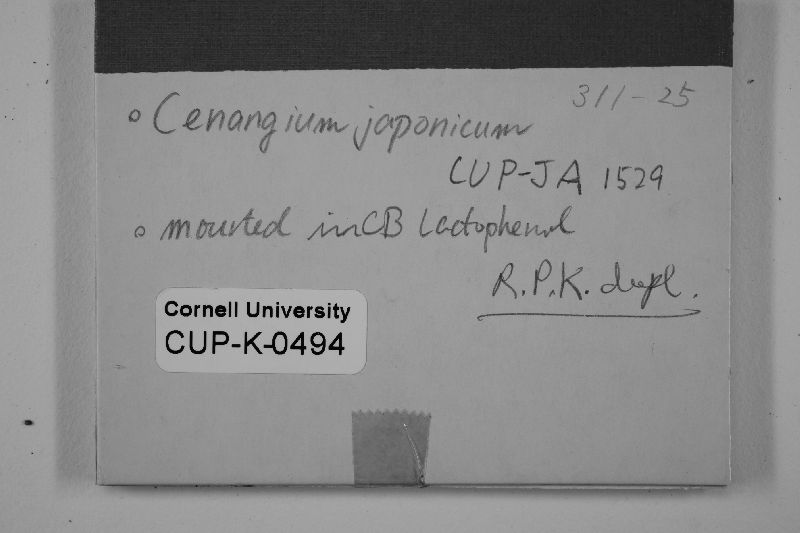 311-25
° Cenangium japonicum
CUP-JA 1529
° mounted in CB Lactophenol
R.P.K. dupl.
Cornell University
CUP-K-0494